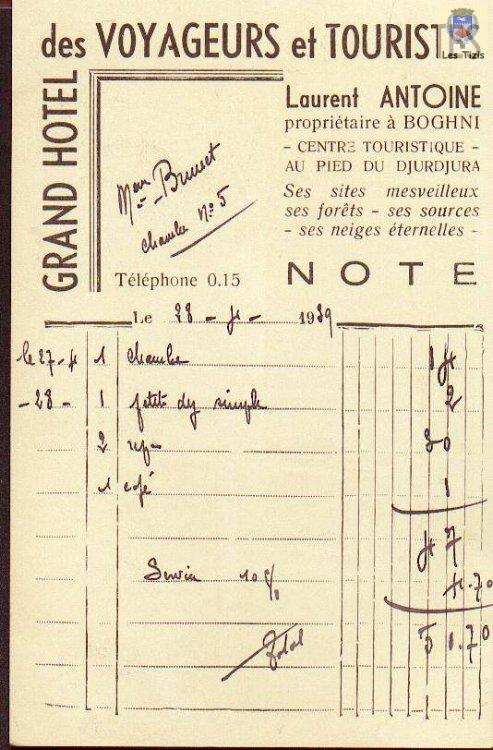 GRAND HOTEL
des VOYAGEURS et TOURIST
Les Tizis
Laurent ANTOINE
propriétaire à BOGHNI
- CENTRE TOURISTIQUE -
AU PIED DU DJURDJURA
Ses sites mesveilleux
ses forêts - ses sources
- ses neiges éternelles -
Brunet
chambre N° 5
Téléphone 0.15
NOTE
Le 28 - 4 - 1939
le 27-4 1 chambre 14
-28- 1 petit dej simple 2
2 rep- 30
1 café 1
47
Service 10% 4.70
Total 51.70